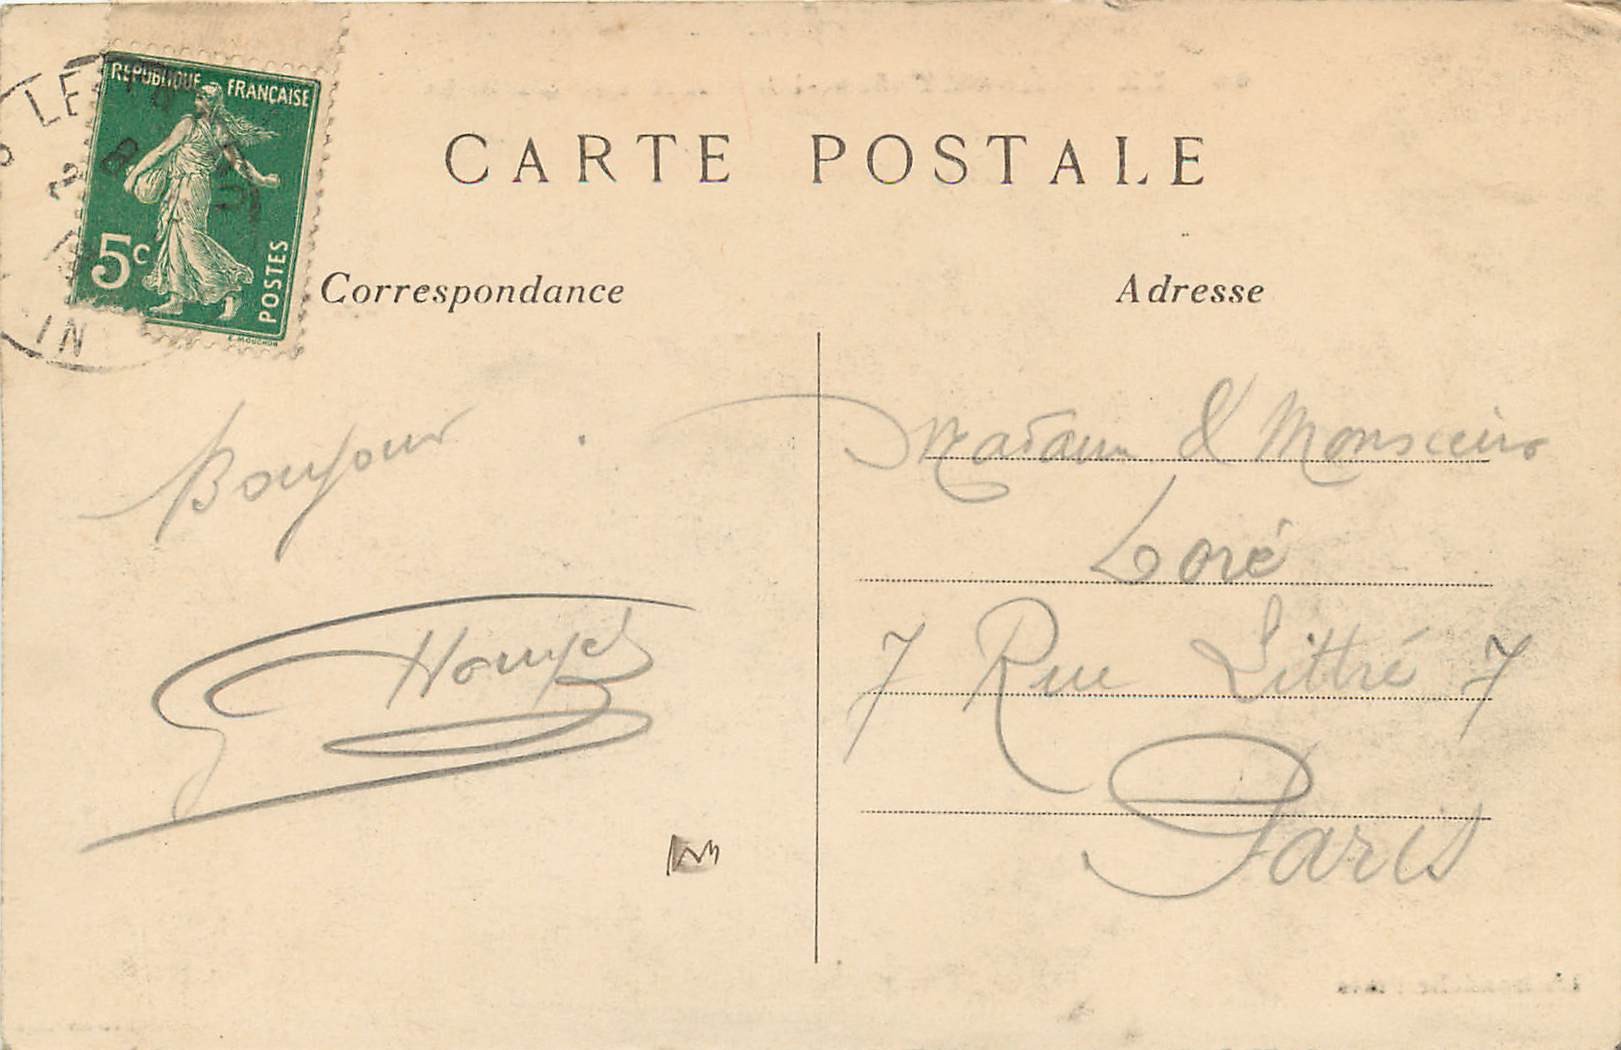 REPUBLIQUE FRANÇAISE
5c
POSTES
E. MOUCHON
CARTE POSTALE
Correspondance
Adresse
Bonjour
Madame & Monsieur
Loré
7 Rue Littré 7
Paris